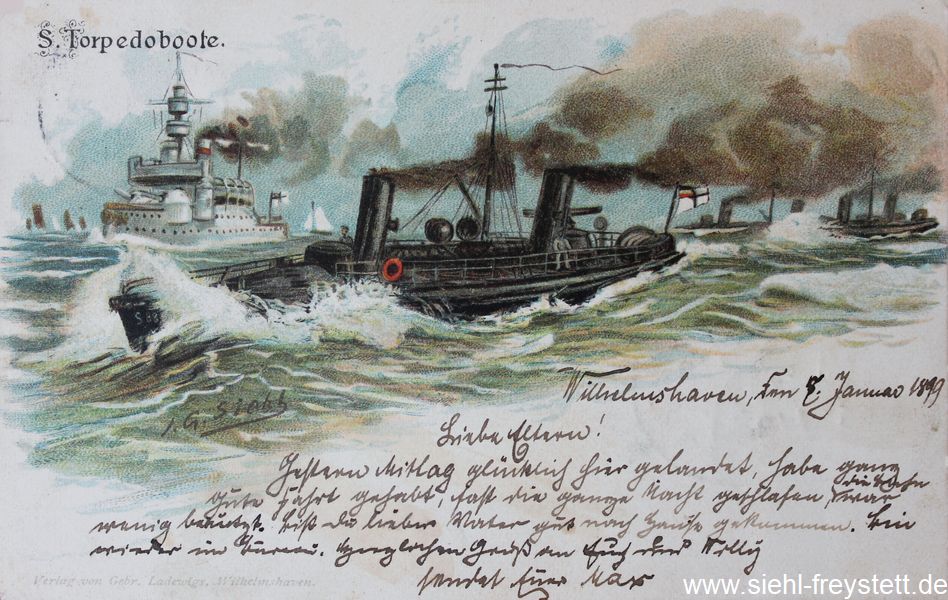 S. Torpedoboote.
Wilhelmshaven, den 8. Januar 1899
Liebe Eltern!
Gestern Mittag glücklich hier gelandet, habe ganz
gute Fahrt gehabt, fast die ganze Nacht geschlafen, die Bahn war
wenig benützt. Bist du lieber Vater gut nach Hause gekommen. Bin
wieder im Bureau. Herzlichen Gruß an Euch und Willy
sendet Euer Max
Verlag von Gebr. Ladewigs, Wilhelmshaven.
www.siehl-freystett.de